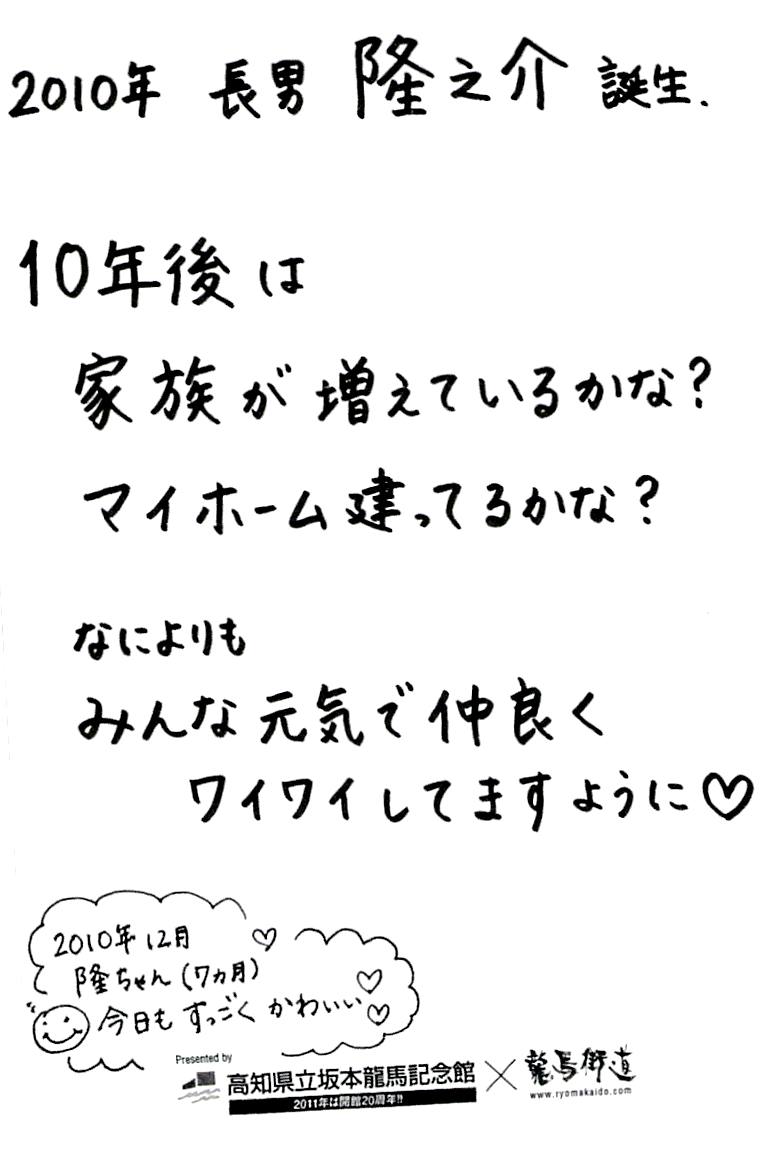 2010年 長男 隆之介 誕生.
10年後は
家族が増えているかな?
マイホーム建ってるかな?
なによりも
みんな元気で仲良く
ワイワイしてますように♡
2010年12月 ♡
隆ちゃん(7ヵ月) ♡
今日もすっごくかわいい♡
Presented by
高知県立坂本龍馬記念館 × 龍馬街道
2011年は開館20周年!!
www.ryomakaido.com